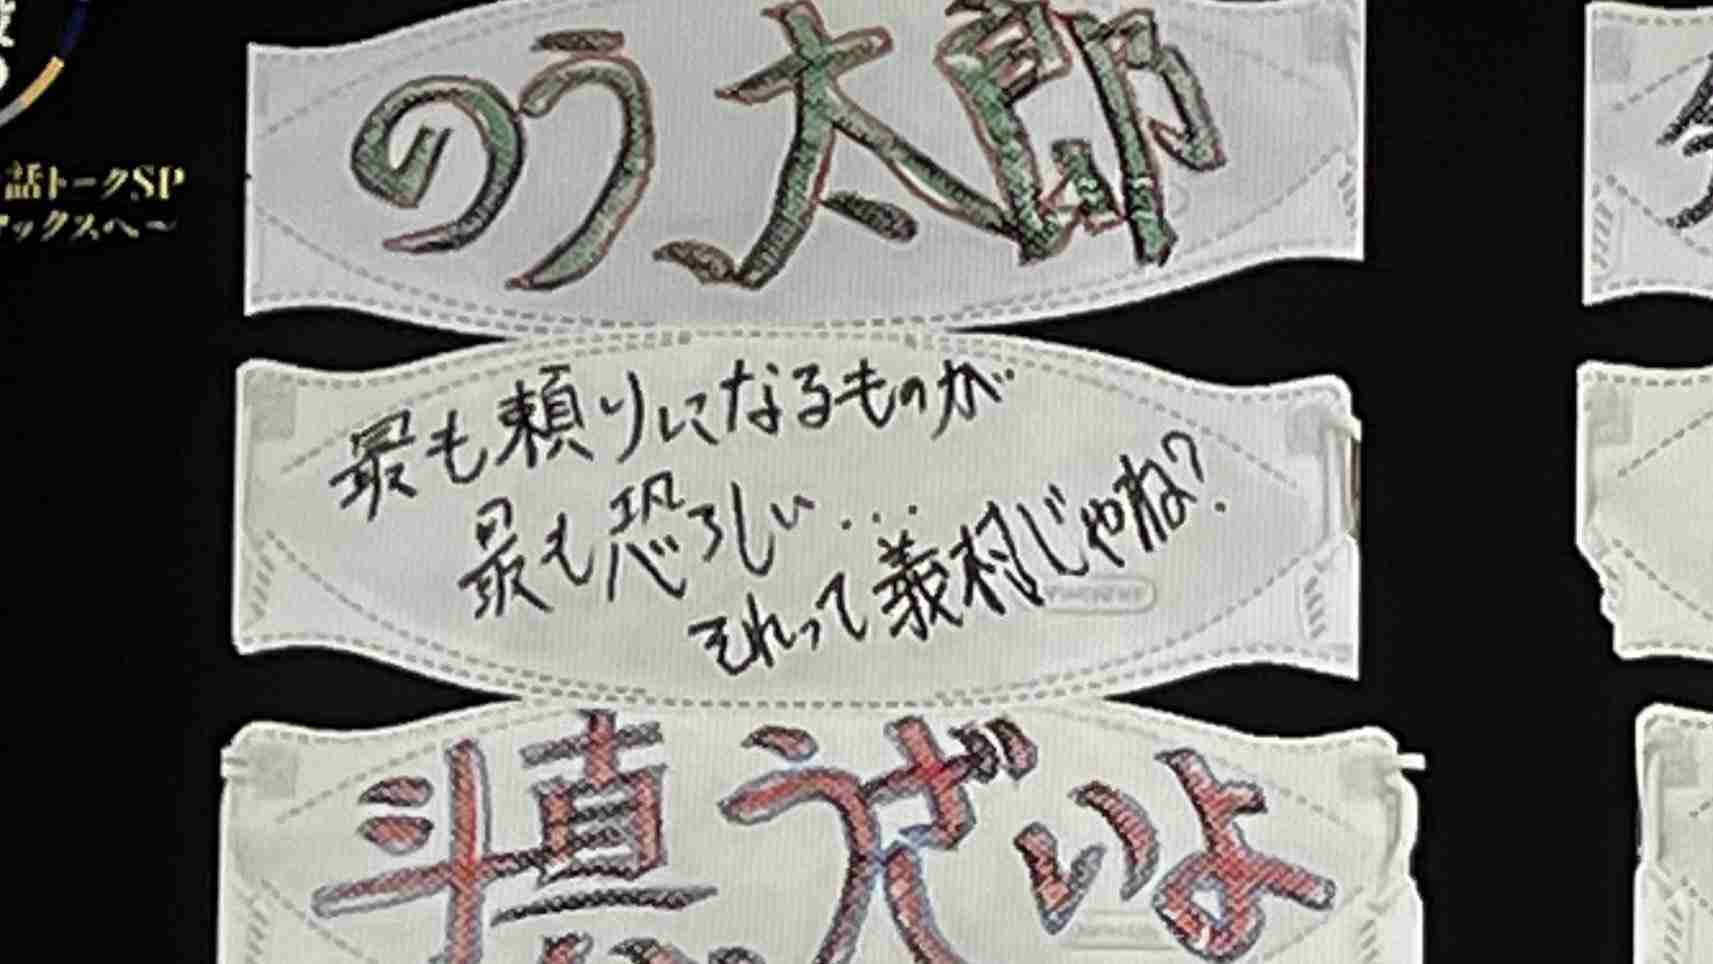 話トークSP
ックスへ～
のう太郎
最も頼りになるものが
最も恐ろしい...
それって義村じゃね?
斗真うざいよ